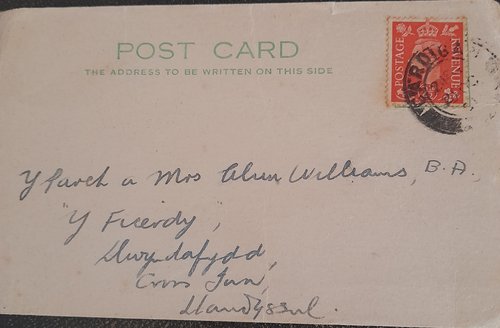 POST CARD
THE ADDRESS TO BE WRITTEN ON THIS SIDE
POSTAGE REVENUE
CARDIG
Y Parch a Mrs Alun Williams, B.A.
"Y Ficerdy,
Llwyndafydd,
Cross Inn,
Llandyssul.